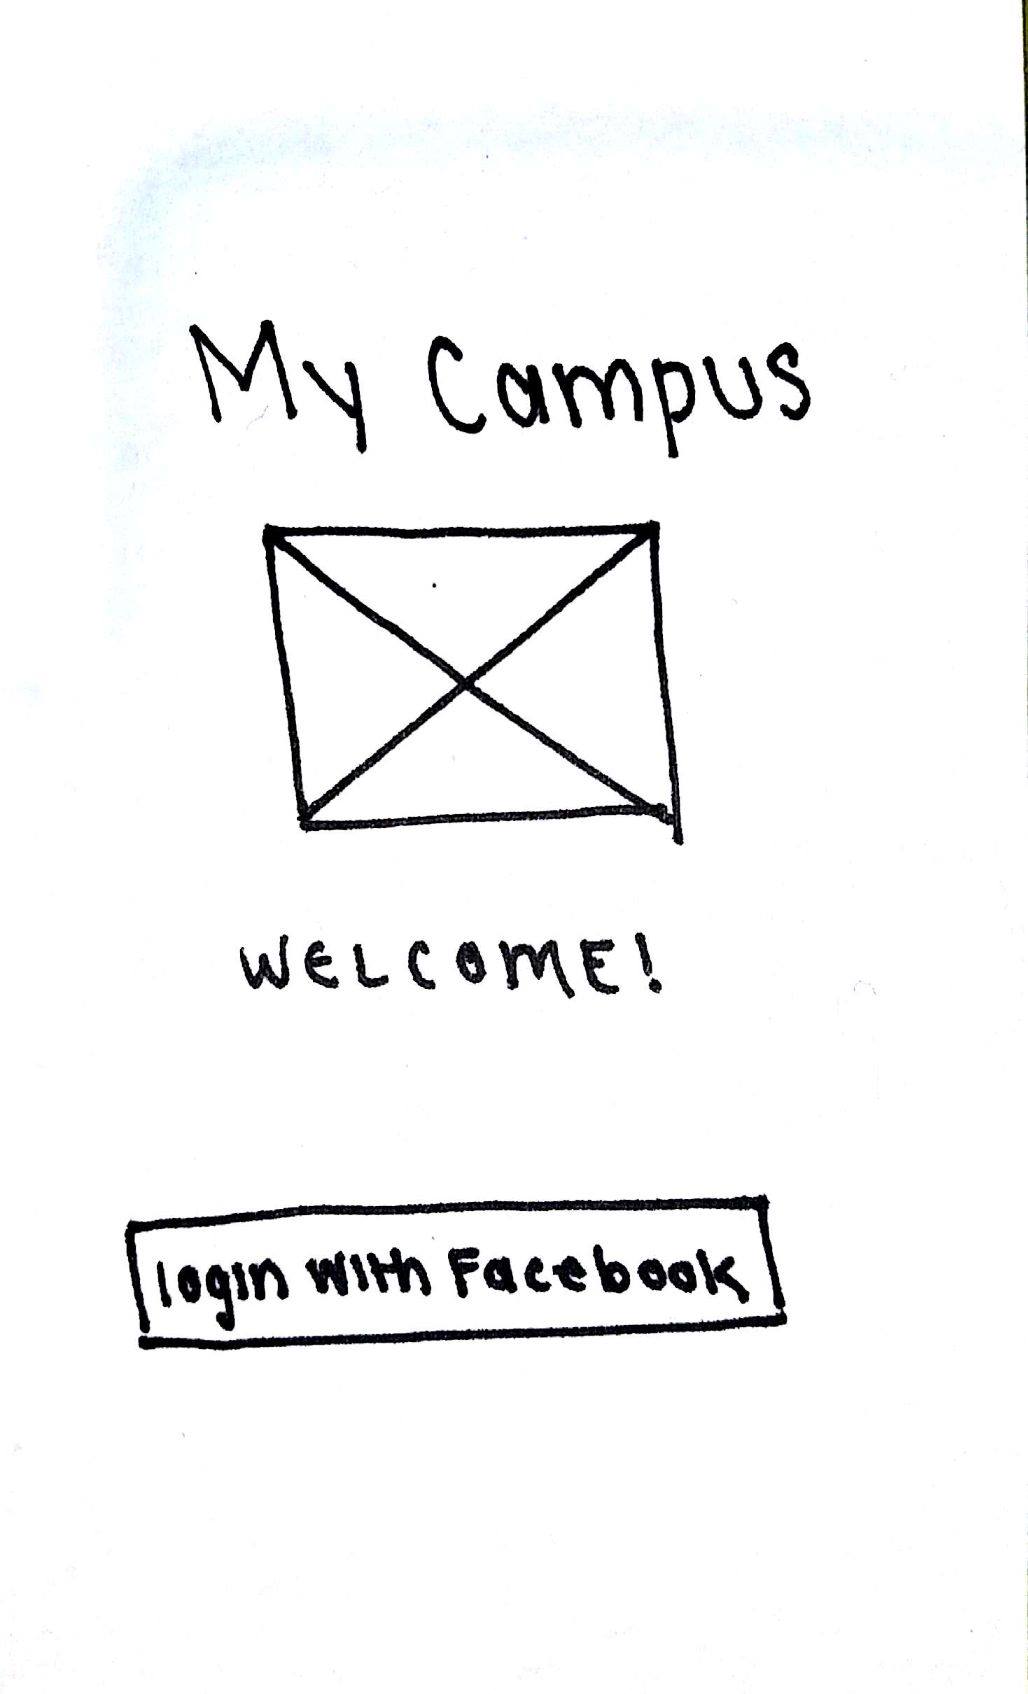 My Campus
WELCOME!
login with Facebook